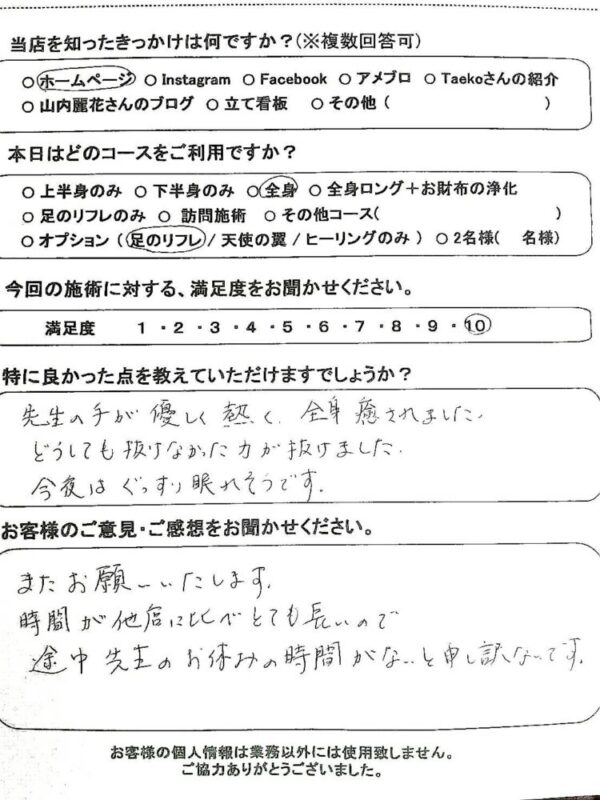 当店を知ったきっかけは何ですか？(※複数回答可)
○ ホームページ ○ Instagram ○ Facebook ○ アメブロ ○ Taekoさんの紹介
○ 山内麗花さんのブログ ○ 立て看板 ○ その他 ( )
本日はどのコースをご利用ですか？
○ 上半身のみ ○ 下半身のみ ○ 全身 ○ 全身ロング＋お財布の浄化
○ 足のリフレのみ ○ 訪問施術 ○ その他コース( )
○ オプション ( 足のリフレ / 天使の翼 / ヒーリングのみ ) ○ 2名様( 名様)
今回の施術に対する、満足度をお聞かせください。
満足度 1 ・ 2 ・ 3 ・ 4 ・ 5 ・ 6 ・ 7 ・ 8 ・ 9 ・ 10
特に良かった点を教えていただけますでしょうか？
先生の手が優しく熱く、全身癒されました。
どうしても抜けなかった力が抜けました。
今夜はぐっすり眠れそうです。
お客様のご意見・ご感想をお聞かせください。
またお願いいたします。
時間が他店に比べとても長いので
途中先生のお休みの時間がないと申し訳ないです。
お客様の個人情報は業務以外には使用致しません。
ご協力ありがとうございました。